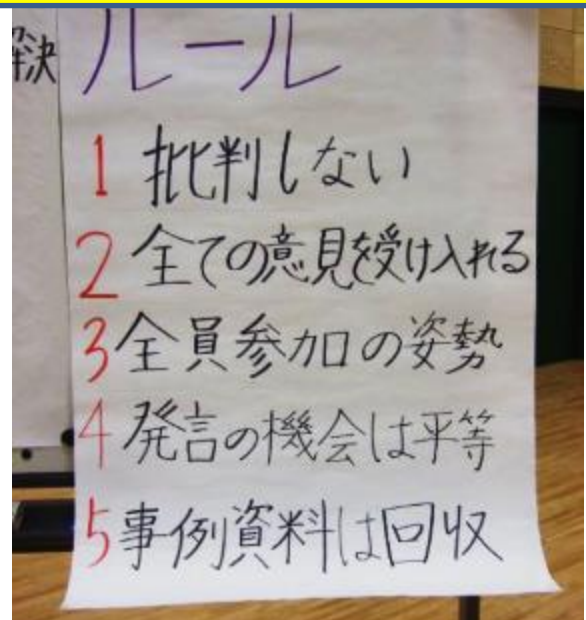 解決
ルール
1 批判しない
2 全ての意見を受け入れる
3 全員参加の姿勢
4 発言の機会は平等
5 事例資料は回収